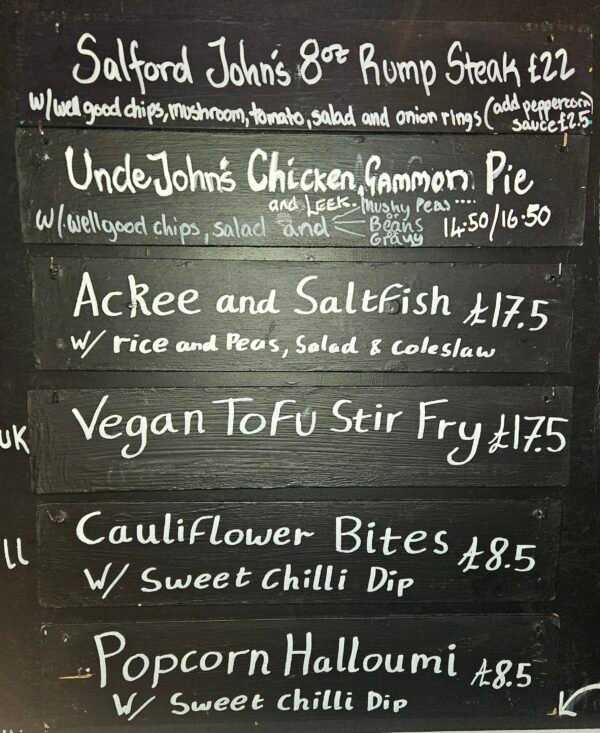 Salford John's 8oz Rump Steak £22
w/well good chips, mushroom, tomato, salad and onion rings (add peppercorn sauce £2.5)
Uncle John's Chicken, Gammon Pie
and LEEK.
w/. well good chips, salad and Mushy Peas.... or Beans or Gravy 14.50/16.50
Ackee and Saltfish £17.5
w/ rice and Peas, Salad & coleslaw
Vegan ToFu Stir Fry £17.5
UK
Cauliflower Bites £8.5
W/ Sweet Chilli Dip
ll
Popcorn Halloumi £8.5
W/ Sweet Chilli Dip